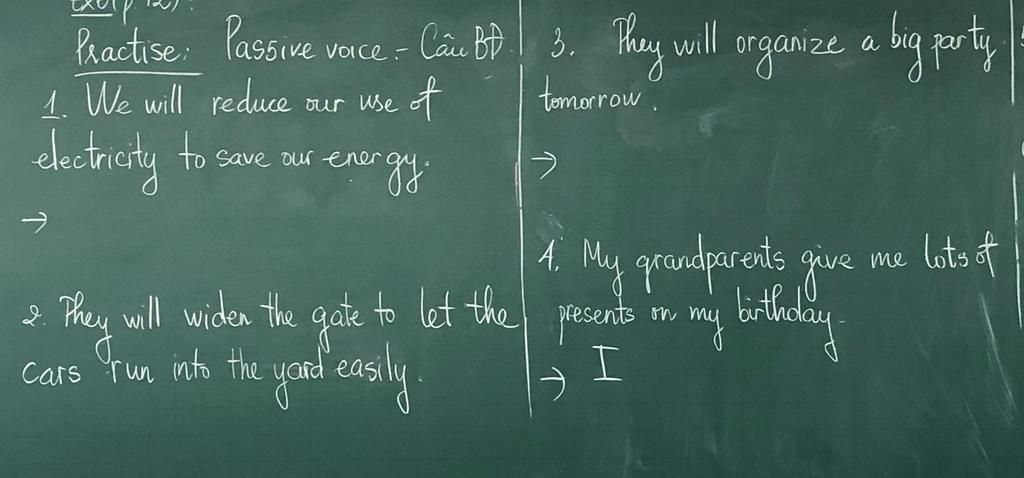 Practise: Passive voice - Câu BĐ
1. We will reduce our use of
electricity to save our energy.
→
2. They will widen the gate to let the
cars run into the yard easily.
3. They will organize a big party
tomorrow.
→
4. My grandparents give me lots of
presents on my birthday.
→ I